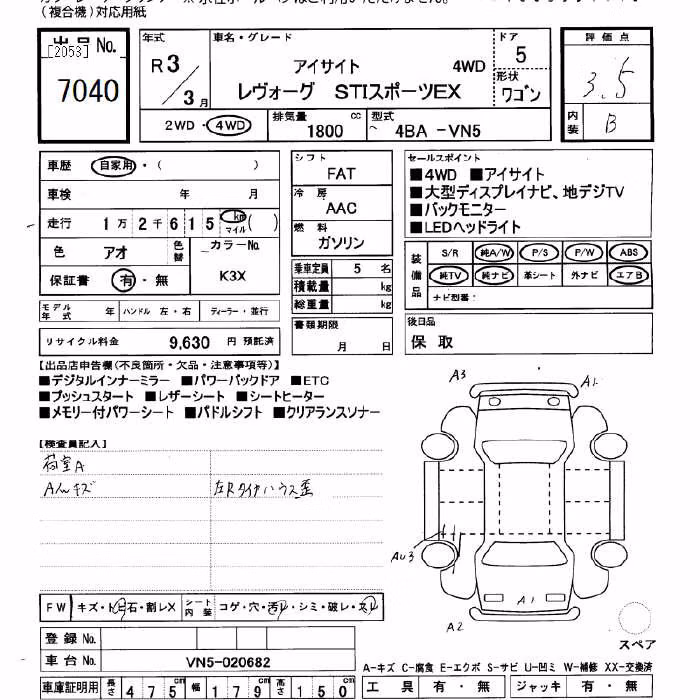 (複合機)対応用紙
出品 No.
[2053]
7040
年式 車名・グレード ドア 評価点
R3/3月 アイサイト 4WD 5 3.5
レヴォーグ STIスポーツEX 形状 ワゴン
2WD・4WD 排気量 1800 cc 型式 4BA -VN5 内装 B
車歴 自家用・( )
車検 年 月
走行 1万2千615 km マイル ( )
色 アオ 色替 カラーNo. K3X
保証書 有・無
モデル年式 年 ハンドル 左・右 ディーラー・並行
リサイクル料金 9,630 円 預託済
シフト FAT
冷房 AAC
燃料 ガソリン
乗車定員 5 名
積載量 kg
総重量 kg
書類期限
月 日
セールスポイント
■4WD ■アイサイト
■大型ディスプレイナビ、地デジTV
■バックモニター
■LEDヘッドライト
装備品 S/R 純A/W P/S P/W ABS
純TV 純ナビ 革シート 外ナビ エアB
ナビ型番:
後日品
保 取
【出品店申告欄(不良箇所・欠品・注意事項等)】
■デジタルインナーミラー ■パワーバックドア ■ETC
■プッシュスタート ■レザーシート ■シートヒーター
■メモリー付パワーシート ■パドルシフト ■クリアランスソナー
【検査員記入】
荷室A
Aんキズ 左Rタイヤハウス歪
A3 A1
AU3
A1
A2
スペア
FW キズ・ト石・割レX シート内装 コゲ・穴・汚レ・シミ・破レ・スレ
登録 No.
車台 No. VN5-020682
A-キズ C-腐食 E-エクボ S-サビ U-凹ミ W-補修 XX-交換済
車庫証明用 長さ 475 cm 幅 179 cm 高さ 150 cm 工具 有・無 ジャッキ 有・無